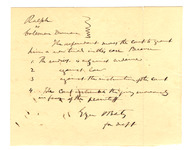 Ralph
vs
Coleman Duncan
The defendant moves the court to grant
him a new trial in this case Because
1 The verdict is against evidence
2 against law
3 against the instructions of the court
4 The Court instructed the jury
in favor of the plaintiff
for deft